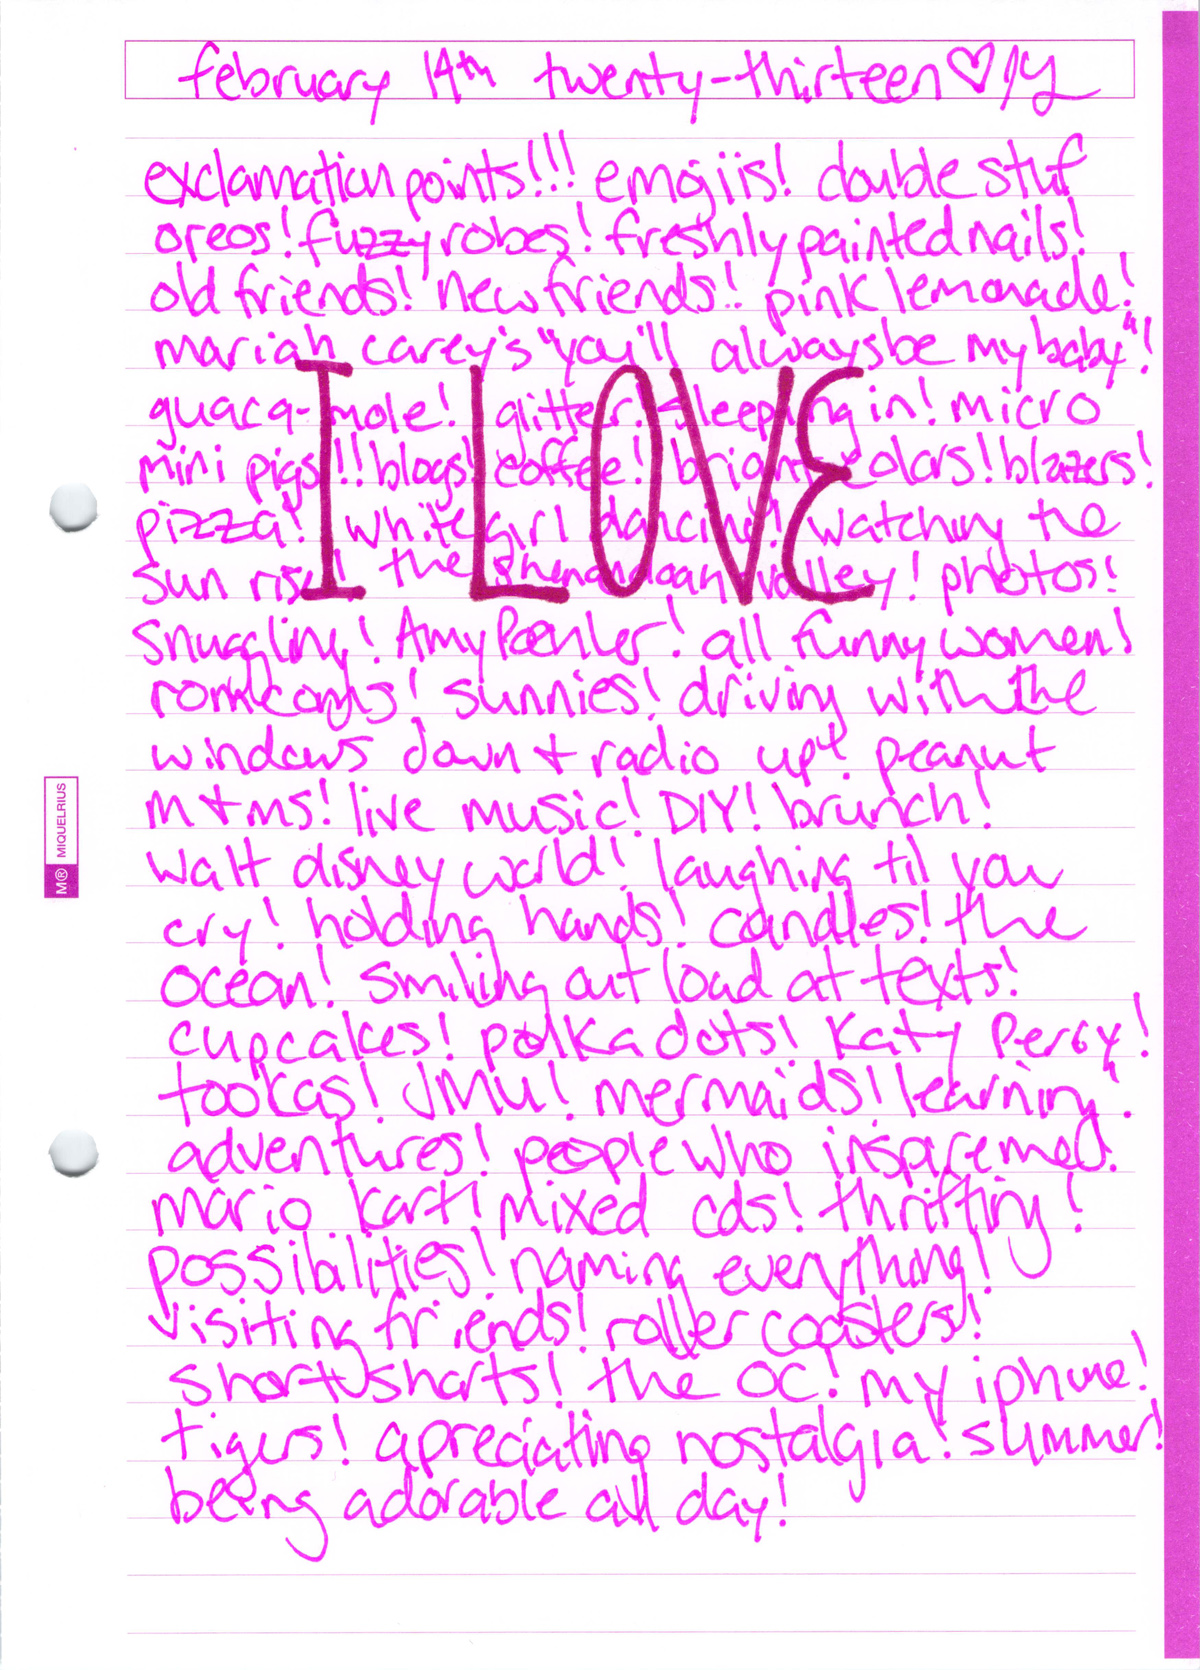 february 14th twenty-thirteen♡
exclamation points!!! emojiis! double stuf
oreos! fuzzy robes! freshly painted nails!
old friends! new friends!! pink lemonade!
mariah carey's "you'll always be my baby"!
guaca-mole! glitter! sleeping in! micro
mini pigs!!! blogs! coffee! bright colors! blazers!
I LOVE
pizza! white girl dancing! watching the
sun rise! the shenandoah valley! photos!
snuggling! Amy Poehler! all funny women!
romcoms! sunnies! driving with the
windows down + radio up! peanut
m+ms! live music! DIY! brunch!
Walt disney world! laughing til you
cry! holding hands! candles! the
ocean! smiling out loud at texts!
cupcakes! polka dots! Katy Perry!
tookas! JMU! mermaids! learning!
adventures! people who inspire me!
mario kart! mixed cds! thrifting!
possibilities! naming everything!
visiting friends! roller coasters!
short shorts! the OC! my iphone!
tigers! apreciating nostalgia! summer!
being adorable all day!
M® MIQUELRIUS